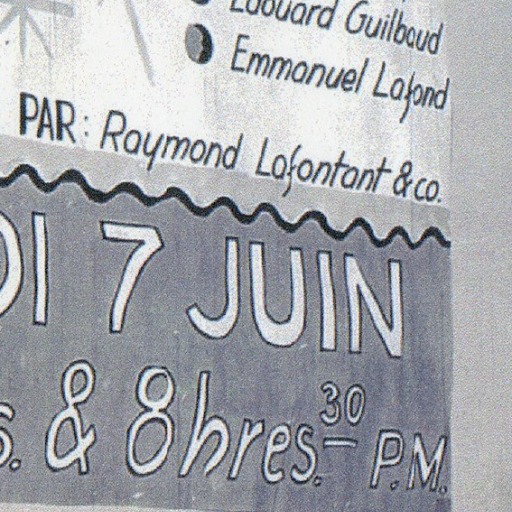 Edouard Guilbaud
Emmanuel Lafond
PAR: Raymond Lafontant & co.
DI 7 JUIN
s. & 8 hres. 30 P.M.